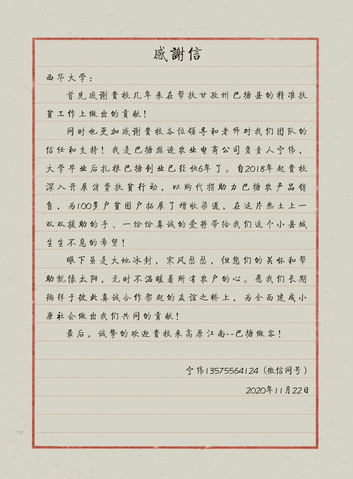 感謝信
西华大学：
首先感谢贵校几年来在帮扶甘孜州巴塘县的精准扶
贫工作上做出的贡献！
同时也更加感谢贵校各位领导和老师对我们团队的
信任和支持！我是巴塘旅途农业电商公司负责人宁伟，
大学毕业后扎根巴塘创业已经快6年了。自2018年起贵校
深入开展消费扶贫行动，以购代捐助力巴塘农产品销
售，为100多户贫困户拓展了增收渠道，在这片热土上一
双双援助的手、一份份真诚的爱将带给我们这个小县城
生生不息的希望！
眼下虽是大地冰封，寒风愁愁，但您们的关怀和帮
助就像太阳，无时不温暖着所有农户的心。愿我们长期
倘徉于彼此真诚合作架起的友谊之桥上，为全面建成小
康社会做出我们共同的贡献！
最后，诚挚的欢迎贵校来高原江南--巴塘做客！
宁伟13575564124（微信同号）
2020年11月22日